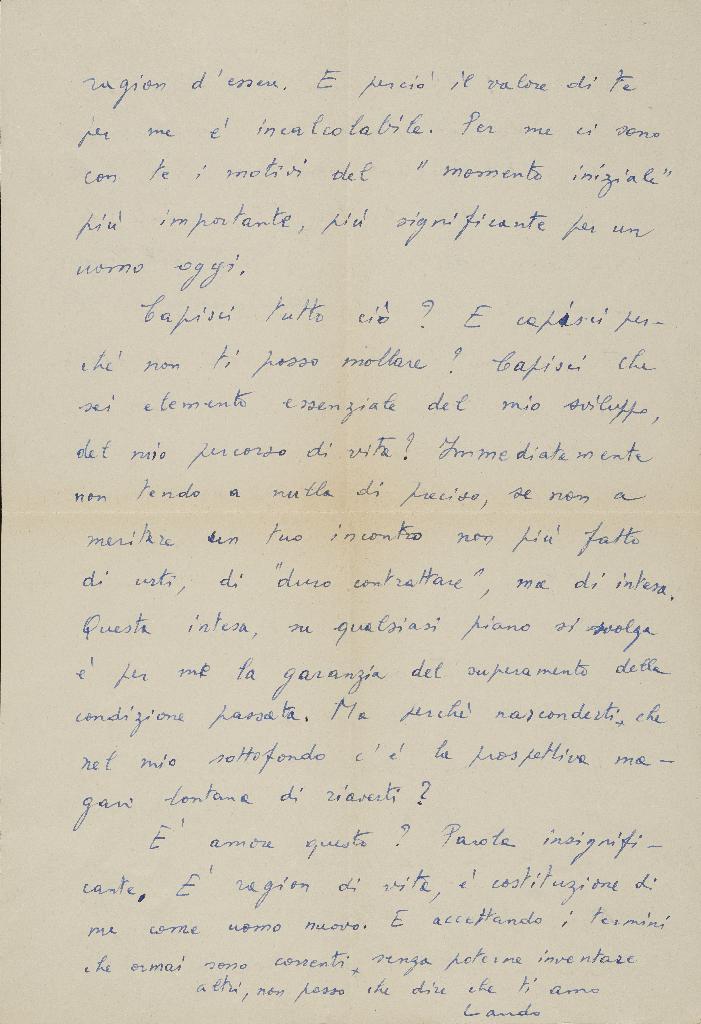 ragion d'essere. E perciò il valore di te
per me é incalcolabile. Per me ci sono
con te i motivi del "momento iniziale"
più importante, più significante per un
uomo oggi.
Capisci tutto ciò? E capisci per-
ché non ti posso mollare? Capisci che
sei elemento essenziale del mio sviluppo,
del mio percorso di vita? Immediatamente
non tendo a nulla di preciso, se non a
meritare un tuo incontro non più fatto
di urti, di "duro contrattare", ma di intesa.
Questa intesa, su qualsiasi piano si svolga
é per me la garanzia del superamento della
condizione passata. Ma perché nasconderti, che
nel mio sottofondo c'é la prospettiva ma-
gari lontana di riaverti?
E' amore questo? Parola insignifi-
cante. E' ragion di vita, é costituzione di
me come uomo nuovo. E accettando i termini
che ormai sono correnti, senza poterne inventare
altri, non posso che dire che ti amo
Lando